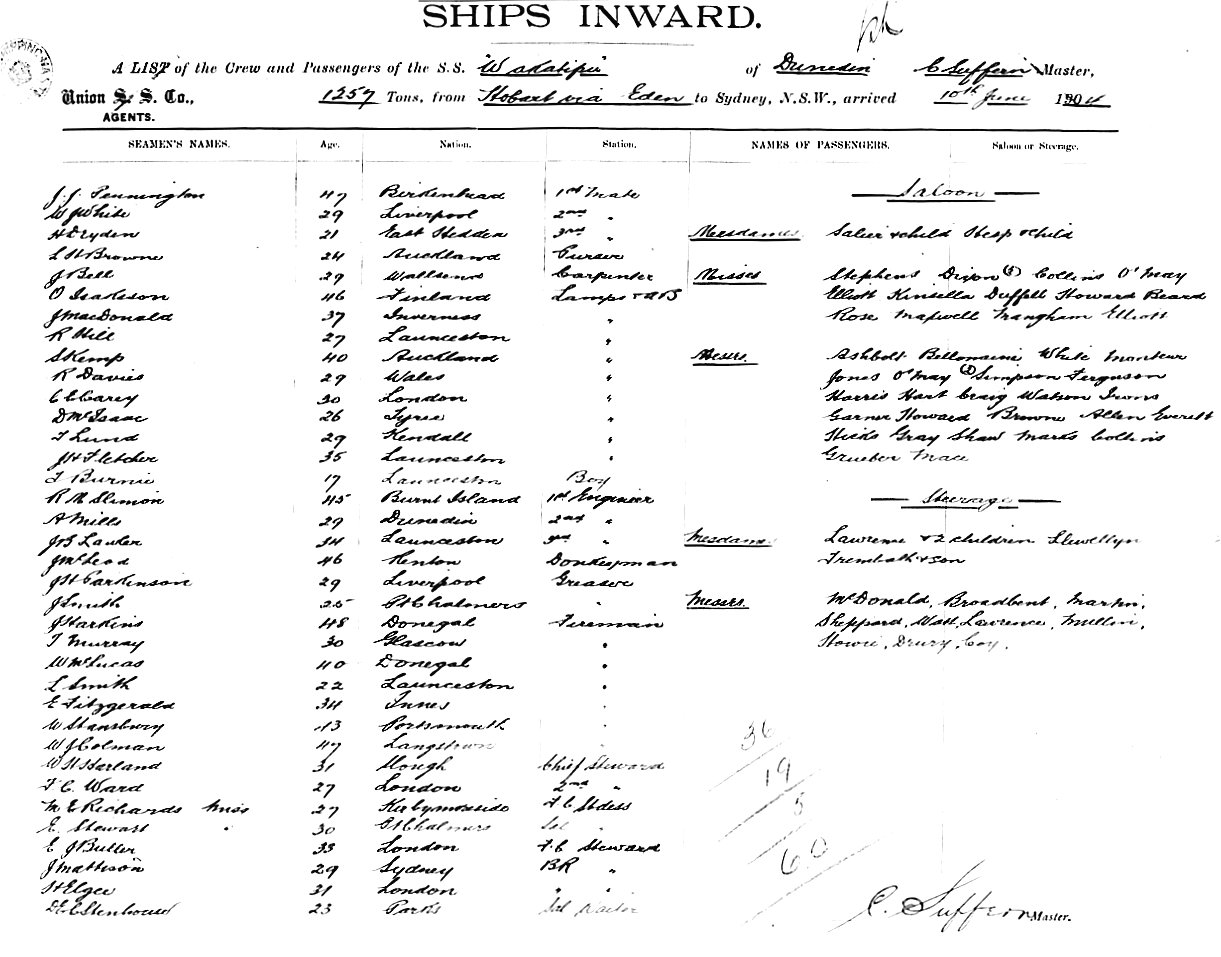 SHIPS INWARD.
A LIST of the Crew and Passengers of the S.S. "Wakatipu" of Dunedin C Suffern Master,
Union S. S. Co., 1257 Tons, from Hobart via Eden to Sydney, N.S.W., arrived 10th June 1904
AGENTS.
SEAMEN'S NAMES. Age. Nation. Station. NAMES OF PASSENGERS. Saloon or Steerage.
J. J. Pennington 47 Birkenhead 1st Mate Saloon
W J White 29 Liverpool 2nd "
H Dryden 21 East Hedden 3rd " Mesdames Salier & child Hesp & child
L H Browne 24 Auckland Purser
J Bell 29 Wallsend Carpenter Misses Stephens Dixon Collins O'May
O Isakson 46 Finland Lamps & AB Elliott Kinsella Duffell Howard Beard
J MacDonald 37 Inverness " Rose Maxwell Mangham Elliott
R Hill 27 Launceston "
S Kemp 40 Auckland " Messrs. Ashbolt White
R Davies 29 Wales " Jones O'May (2) Simpson Ferguson
C C Carey 30 London " Harris Hart Craig Watson Irons
D McIsaac 26 Tyree " Garner Howard Browne Allen Everett
T Lund 29 Kendall " Hieds Gray Shaw Marks Collins
J H Fletcher 35 Launceston " Grueber Mace
T Burnie 17 Launceston Boy
R M Slimon 45 Burnt Island 1st Engineer Steerage
A Mills 29 Dunedin 2nd "
J B Lawler 34 Launceston 3rd " Mesdames Lawrence & 2 children Llewellyn
J McLeod 46 Kenton Donkeyman Trembath & son
J H Parkinson 29 Liverpool Greaser
J Smith 25 Pt Chalmers " Messrs. McDonald, Broadbent, Martin,
J Harkins 48 Donegal Fireman Sheppard, Watt, Lawrence, Mullin,
T Murray 30 Glascow " Howie, Drury, Coy.
W McLucas 40 Donegal "
L Smith 22 Launceston "
E Fitzgerald 34 Innes "
W Stansbury 43 Portsmouth "
W J Colman 47 Langstown " 36
W H Harland 31 Hough Chief Steward
F C Ward 27 London 2nd " 19
M E Richards Miss 27 Kirbymoside F C Stdess
E. Stewart " 30 Pt Chalmers Sal " 5
E J Butler 33 London F. C Steward
J Mathison 29 Sydney BR " 60
H Elgee 31 London " "
D E C Stenhouse 23 Parks Sal Waiter C. Suffern Master.